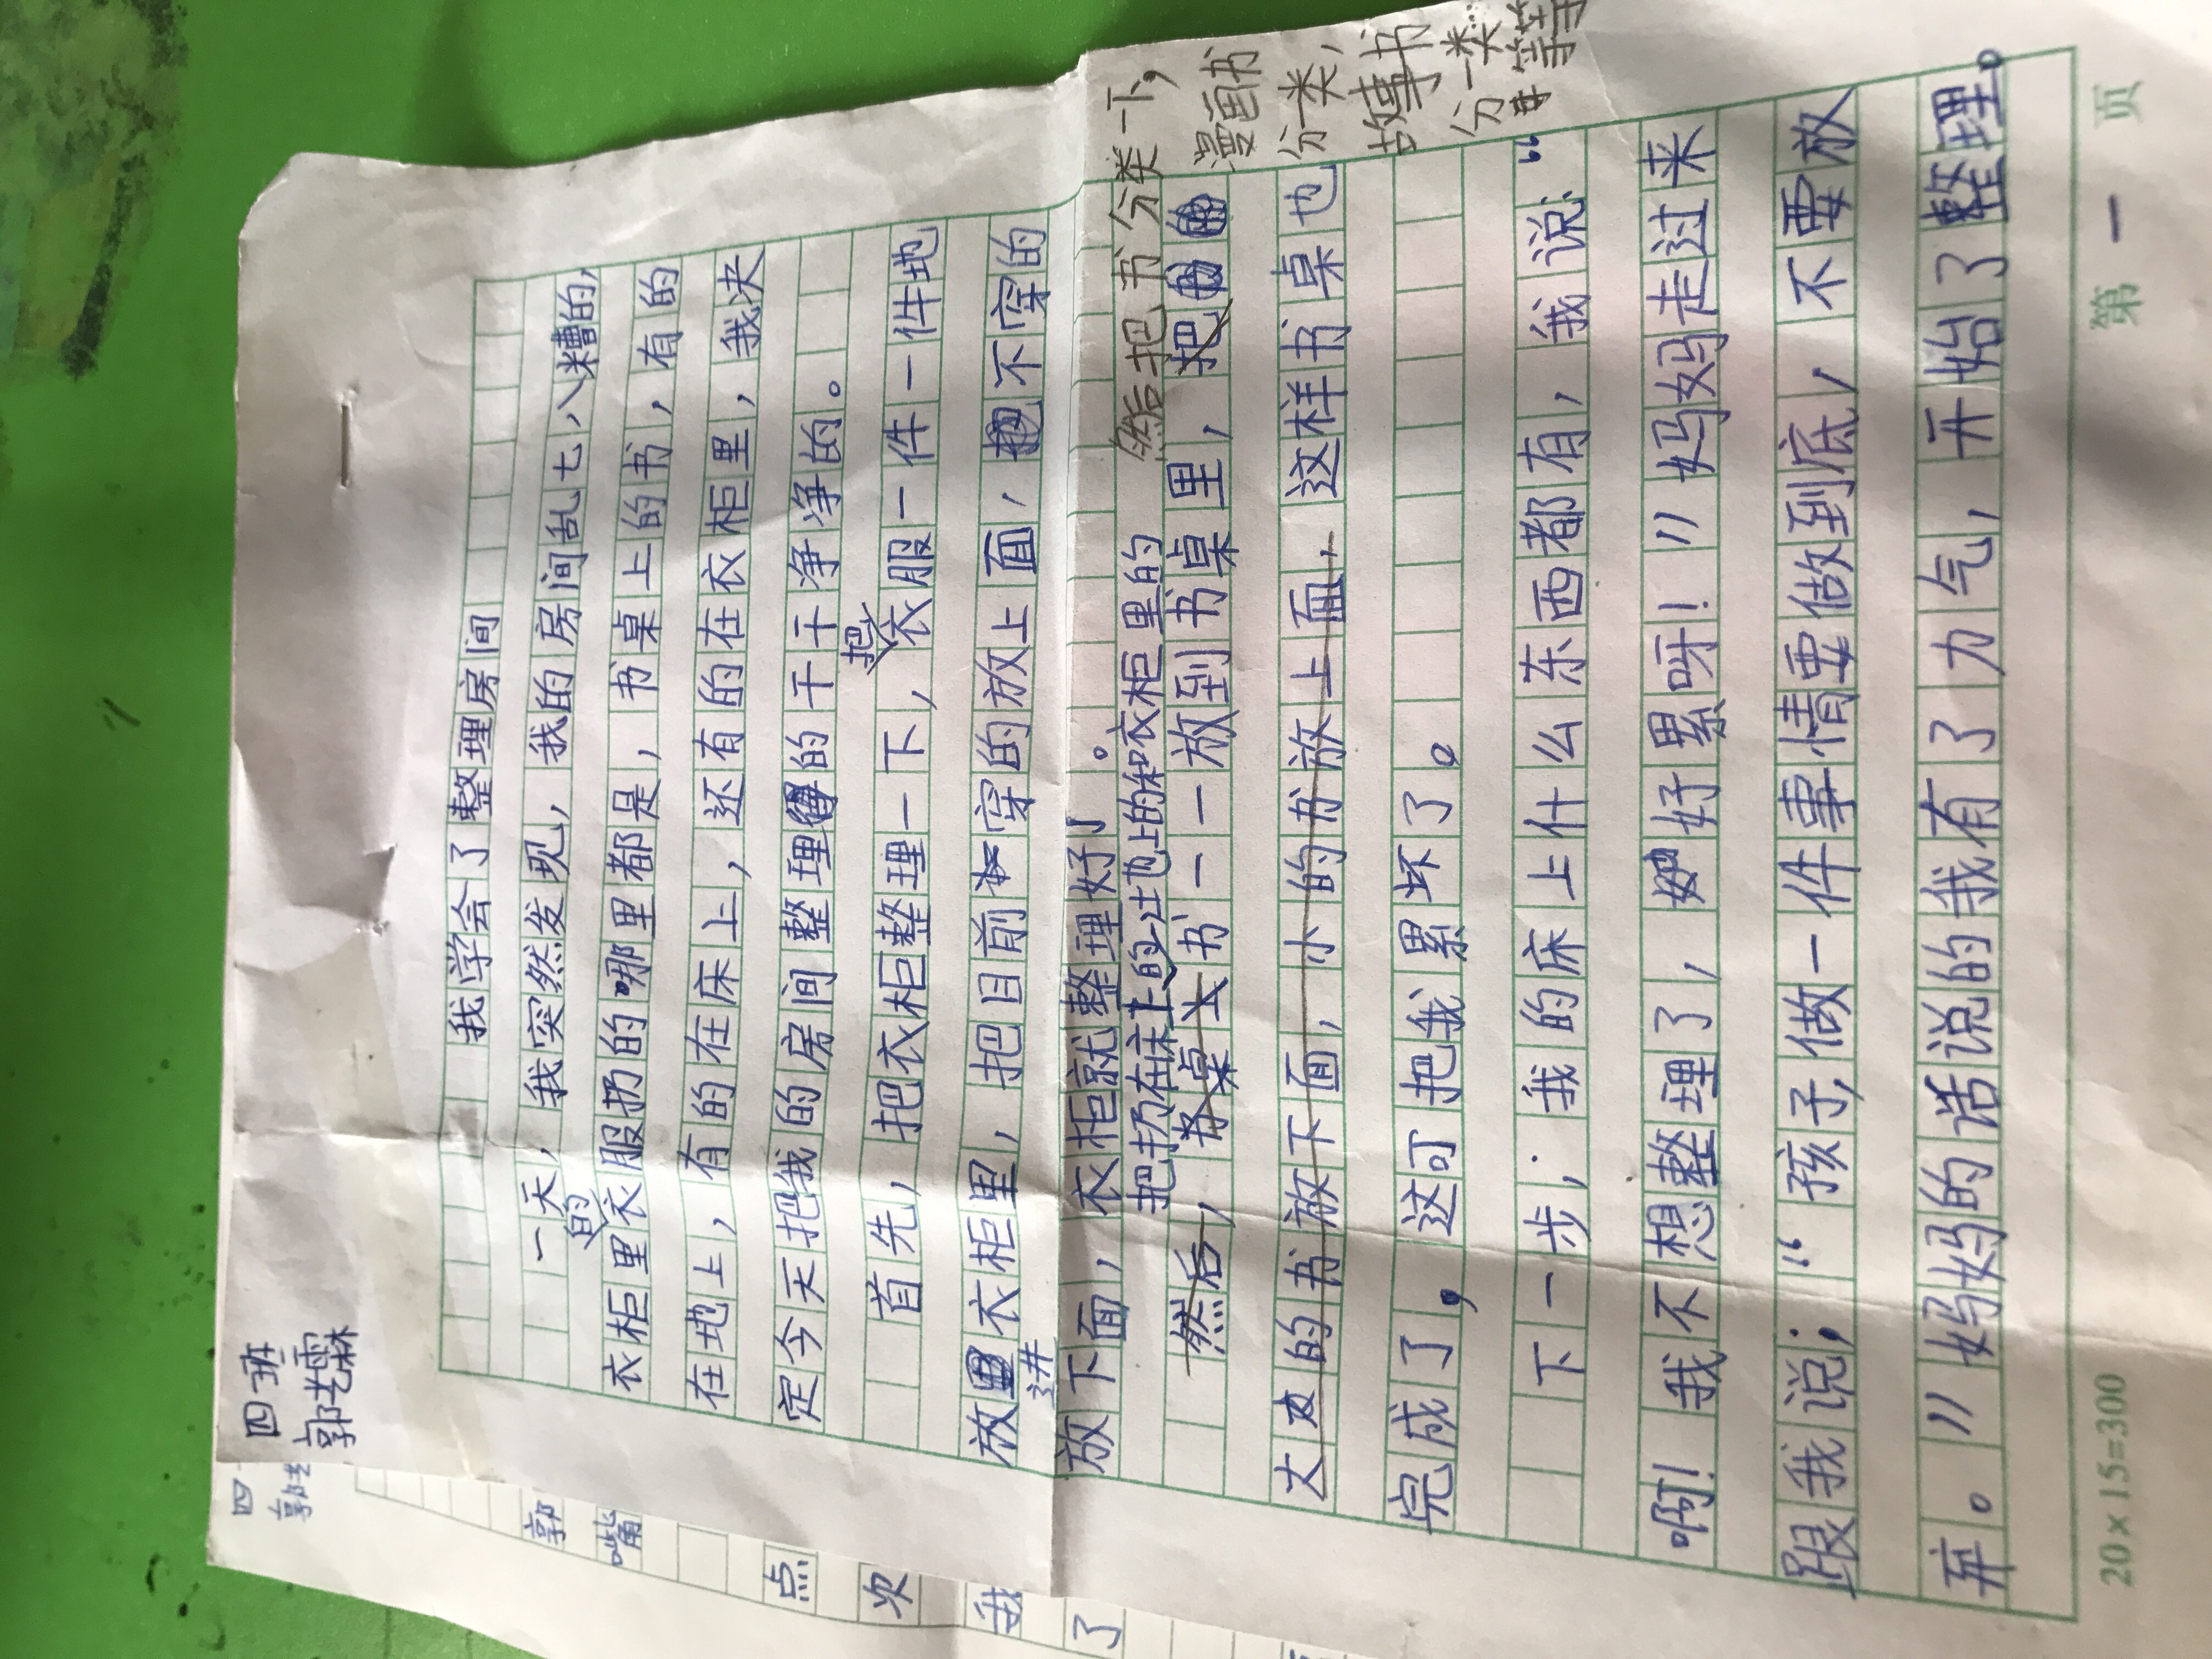 四班
郭艺霖
我学会了整理房间
一天,我突然发现,我的房间乱七八糟的,
的
衣柜里衣服扔的哪里都是,书桌上的书,有的
在地上,有的在床上,还有的在衣柜里,我决
定今天把我的房间整理的干干净净的。
把
首先,把衣柜整理一下,衣服一件一件地
放衣柜里,把目前穿的放上面,不穿的
进
放下面,衣柜就整理好了。
把扔在床上的地上的和衣柜里的
然后把书分类一下,
漫画书
分一类,
故事书
分一类…
等等
然后,书桌上书一一放到书桌里,把
大的书放下面,小的书放上面,这样书桌也
完成了,这可把我累坏了。
下一步,我的床上什么东西都有,我说:“
啊!我不想整理了,好累呀!”妈妈走过来
跟我说;“孩子,做一件事情要做到底,不要放
弃。”妈妈的话说的我有了力气,开始了整理。
20×15=300
第 一 页
四
郭
郭
嘴
点
次
我
了